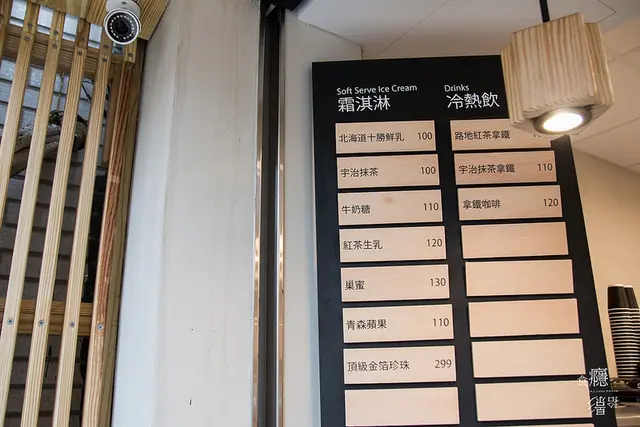 Soft Serve Ice Cream
霜淇淋
北海道十勝鮮乳 100
宇治抹茶 100
牛奶糖 110
紅茶生乳 120
巢蜜 130
青森蘋果 110
頂級金箔珍珠 299
Drinks
冷熱飲
路地紅茶拿鐵
宇治抹茶拿鐵 110
拿鐵咖啡 120